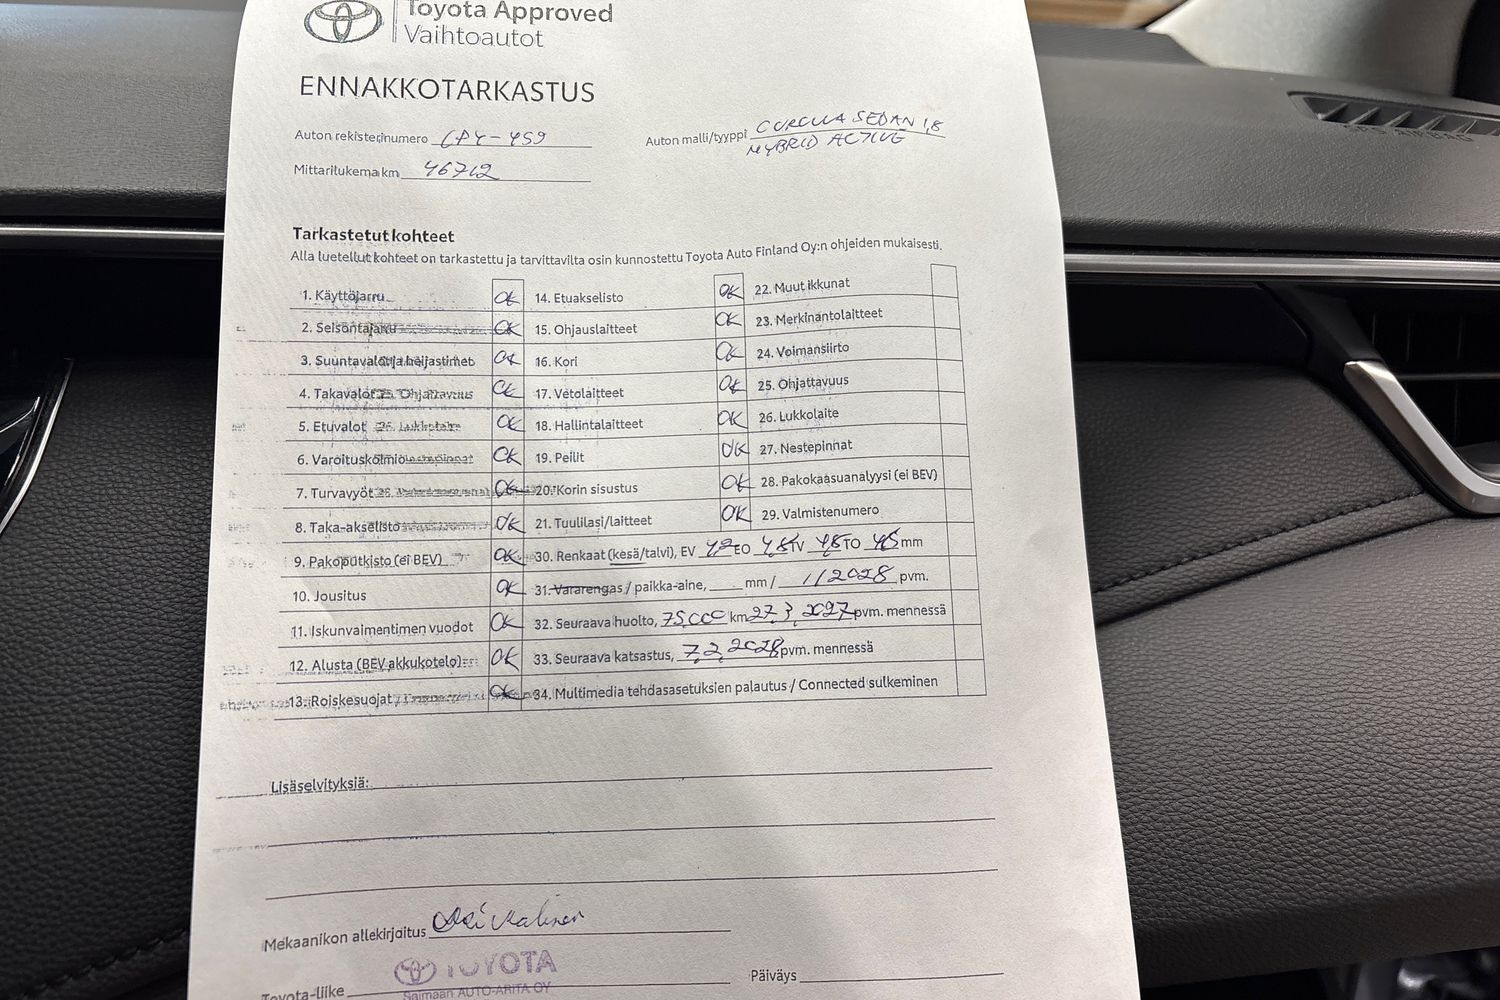 Toyota Approved
Vaihtoautot
ENNAKKOTARKASTUS
Auton rekisterinumero CPY-459
Auton malli/tyyppi COROLLA SEDAN 1,8
HYBRID ACTIVE
Mittarilukema km 46712
Tarkastetut kohteet
Alla luetellut kohteet on tarkastettu ja tarvittavilta osin kunnostettu Toyota Auto Finland Oy:n ohjeiden mukaisesti.
1. Käyttöjarru OK
2. Seisontajarru OK
3. Suuntavalot ja heijastimet OK
4. Takavalot 25. Ohjattavuus OK
5. Etuvalot 26. Lukkolaite OK
6. Varoituskolmio OK
7. Turvavyöt OK
8. Taka-akselisto OK
9. Pakoputkisto (ei BEV) OK
10. Jousitus OK
11. Iskunvaimentimen vuodot OK
12. Alusta (BEV akkukotelo) OK
13. Roiskesuojat OK
14. Etuakselisto OK
15. Ohjauslaitteet OK
16. Kori OK
17. Vetolaitteet OK
18. Hallintalaitteet OK
19. Peilit OK
20. Korin sisustus OK
21. Tuulilasi/laitteet OK
22. Muut ikkunat
23. Merkinantolaitteet
24. Voimansiirto
25. Ohjattavuus
26. Lukkolaite
27. Nestepinnat
28. Pakokaasuanalyysi (ei BEV)
29. Valmistenumero
30. Renkaat (kesä/talvi), EV EO 4,8 TV 4,8 TO mm
31. Vararengas / paikka-aine, mm / 1/2028 pvm.
32. Seuraava huolto, 75000 km 27.3.2027 pvm. mennessä
33. Seuraava katsastus, 7.2.2028 pvm. mennessä
34. Multimedia tehdasasetuksien palautus / Connected sulkeminen
Lisäselvityksiä:
Mekaanikon allekirjoitus
TOYOTA
Toyota-liike Saimaan AUTO-ARITA OY
Päiväys